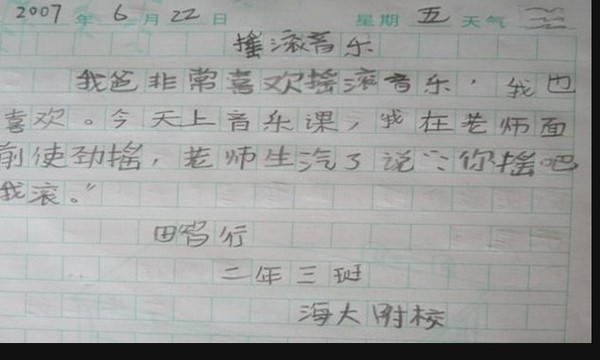 2007年6月22日 星期五天气
摇滚音乐
我爸非常喜欢摇滚音乐，我也
喜欢。今天上音乐课，我在老师面
前使劲摇，老师生汽了说："你摇吧
我滚。"
田 行
二年三班
海大附校